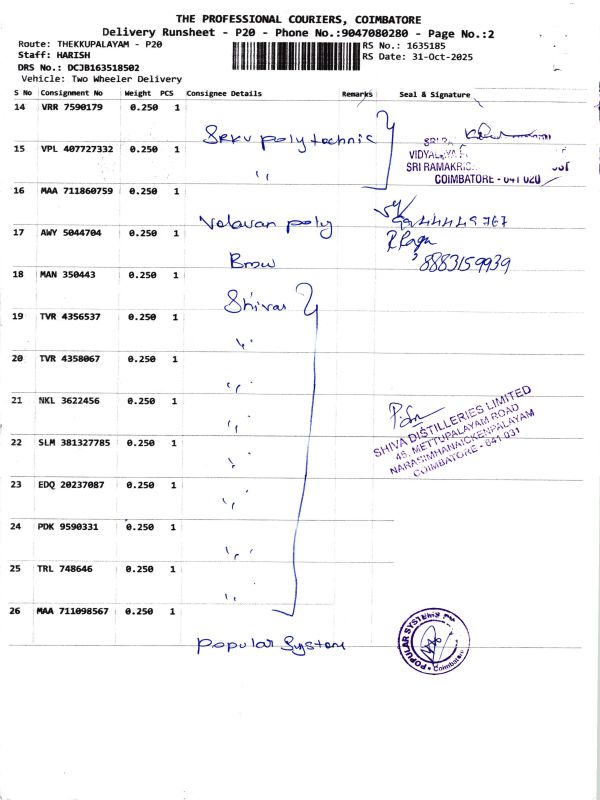 THE PROFESSIONAL COURIERS, COIMBATORE
Delivery Runsheet - P20 - Phone No.:9047080280 - Page No.:2
Route: THEKKUPALAYAM - P20
RS No.: 1635185
Staff: HARISH
RS Date: 31-Oct-2025
DRS No.: DCJB163518502
Vehicle: Two Wheeler Delivery
S No Consignment No Weight PCS Consignee Details Remarks Seal & Signature
14 VRR 7590179 0.250 1
SRKV polytechnic
15 VPL 407727332 0.250 1
VIDYALAYA
SRI RAMAKRIS
COIMBATORE - 641 020
"
16 MAA 711860759 0.250 1
Valavan poly
17 AWY 5044704 0.250 1
8883159939
18 MAN 350443 0.250 1
Shiva
19 TVR 4356537 0.250 1
"
20 TVR 4358067 0.250 1
"
21 NKL 3622456 0.250 1
"
SHIVA DISTILLERIES LIMITED
45, METTUPALAYAM ROAD
NARASIMHANAICKENPALAYAM
COIMBATORE - 641 031
22 SLM 381327785 0.250 1
"
23 EDQ 20237087 0.250 1
"
24 PDK 9590331 0.250 1
"
25 TRL 748646 0.250 1
"
26 MAA 711098567 0.250 1
Popular System
POPULAR SYSTEMS
Coimbatore